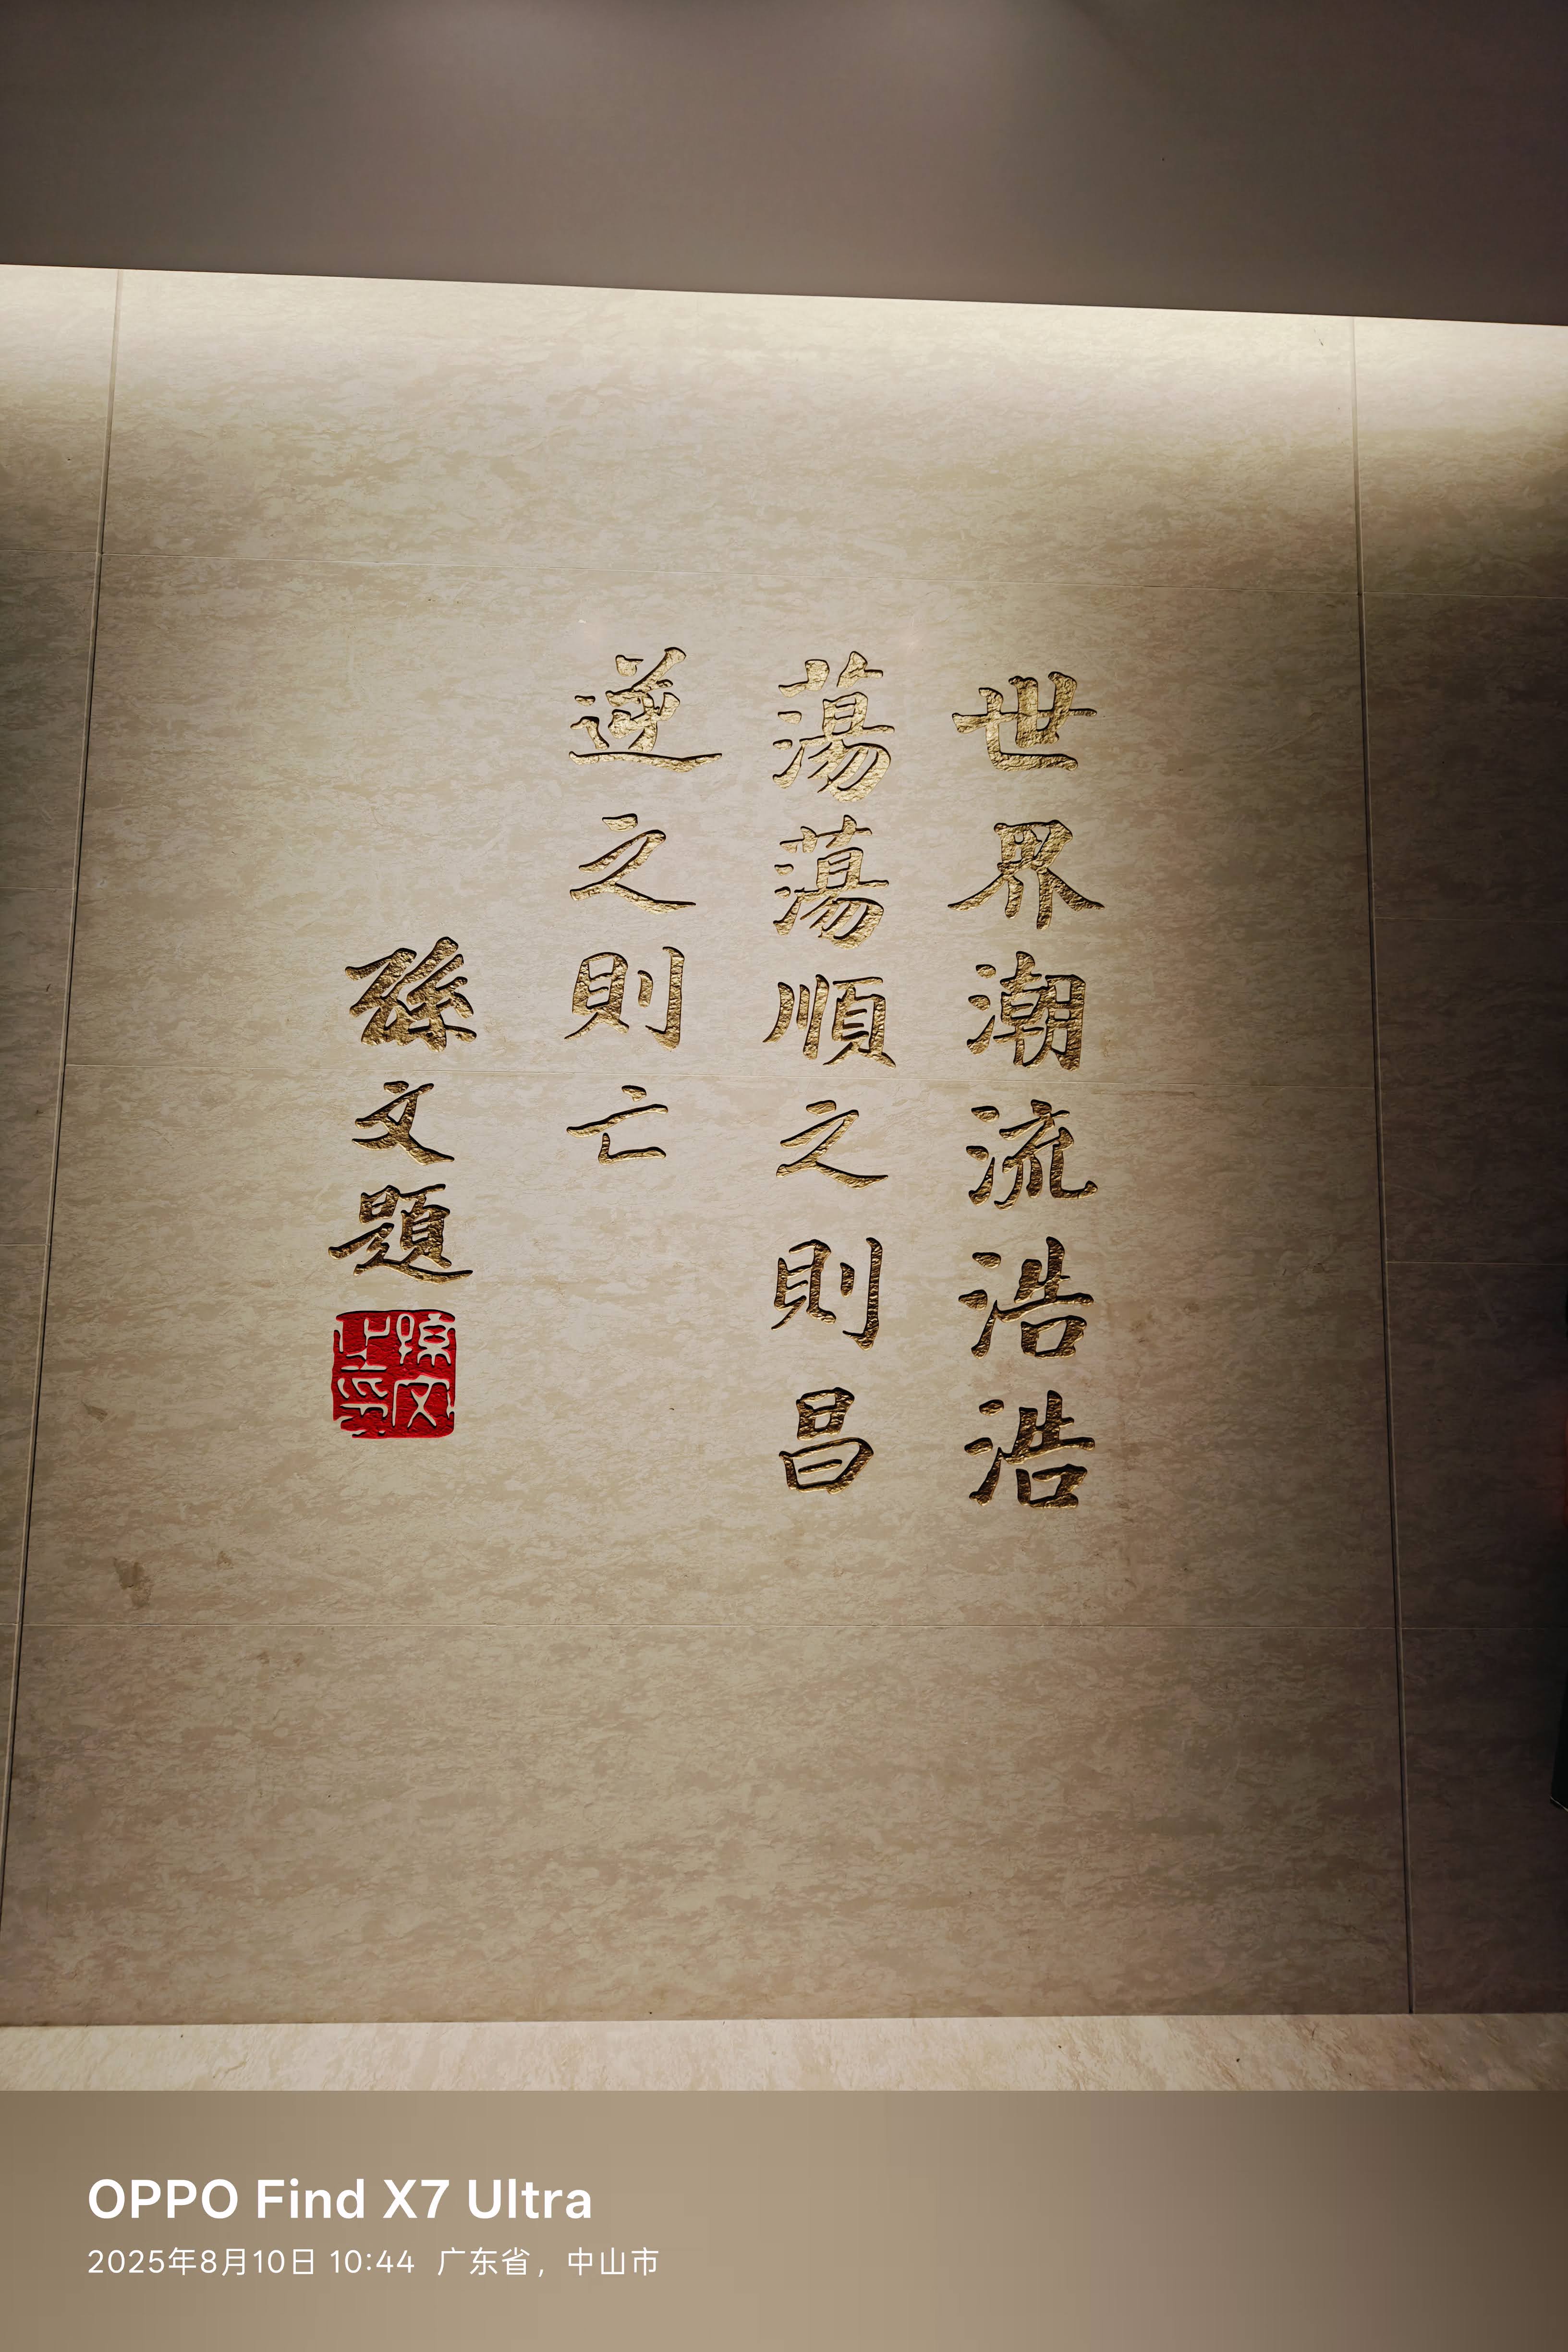 世界潮流浩浩
蕩蕩順之則昌
逆之則亡
孫文題
孫文之印
OPPO Find X7 Ultra
2025年8月10日 10:44 广东省，中山市